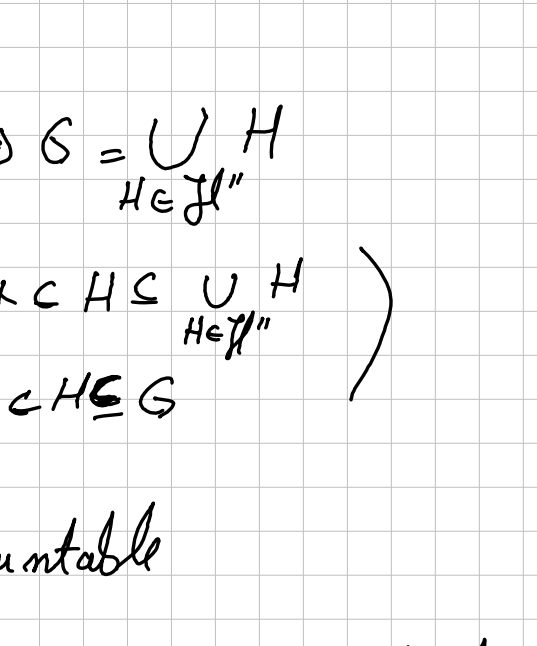 G = ⋃ H
H ∈ ℋ″
⊂ H ⊆ ⋃ H )
H ∈ ℋ″
⊂ H ⊆ G
untable